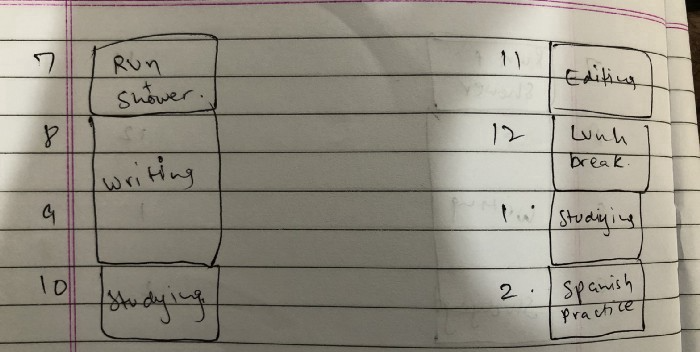 7
Run
+
Shower.
8
Writing
9
10
Studying.
11
Editing
12
Lunh
break.
1.
Studiying
2.
Spanish
Practice